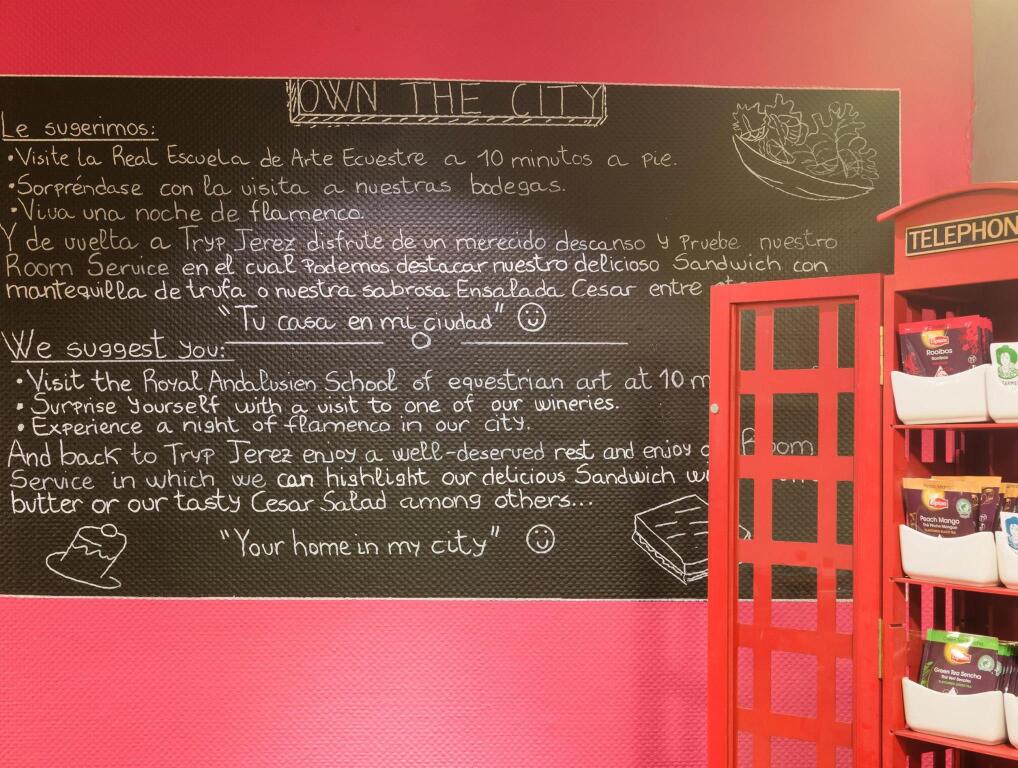 OWN THE CITY
Le sugerimos:
• Visite la Real Escuela de Arte Ecuestre a 10 minutos a pie.
• Sorpréndase con la visita a nuestras bodegas.
• Viva una noche de flamenco.
Y de vuelta a Tryp Jerez disfrute de un merecido descanso y pruebe nuestro
Room Service en el cual podemos destacar nuestro delicioso Sandwich con
mantequilla de trufa o nuestra sabrosa Ensalada Cesar entre
"Tu casa en mi ciudad"
We suggest you:
• Visit the Royal Andalusien School of equestrian art at 10 m
• Surprise yourself with a visit to one of our wineries.
• Experience a night of flamenco in our city.
And back to Tryp Jerez enjoy a well-deserved rest and enjoy Room
Service in which we can highlight our delicious Sandwich
butter or our tasty Cesar Salad among others...
"Your home in my city"
TELEPHON
Lipton
Rooibos
Rooibos
Lipton
Peach Mango
Thé Pêche Mangue
Lipton
Green Tea Sencha
Thé Vert Sencha